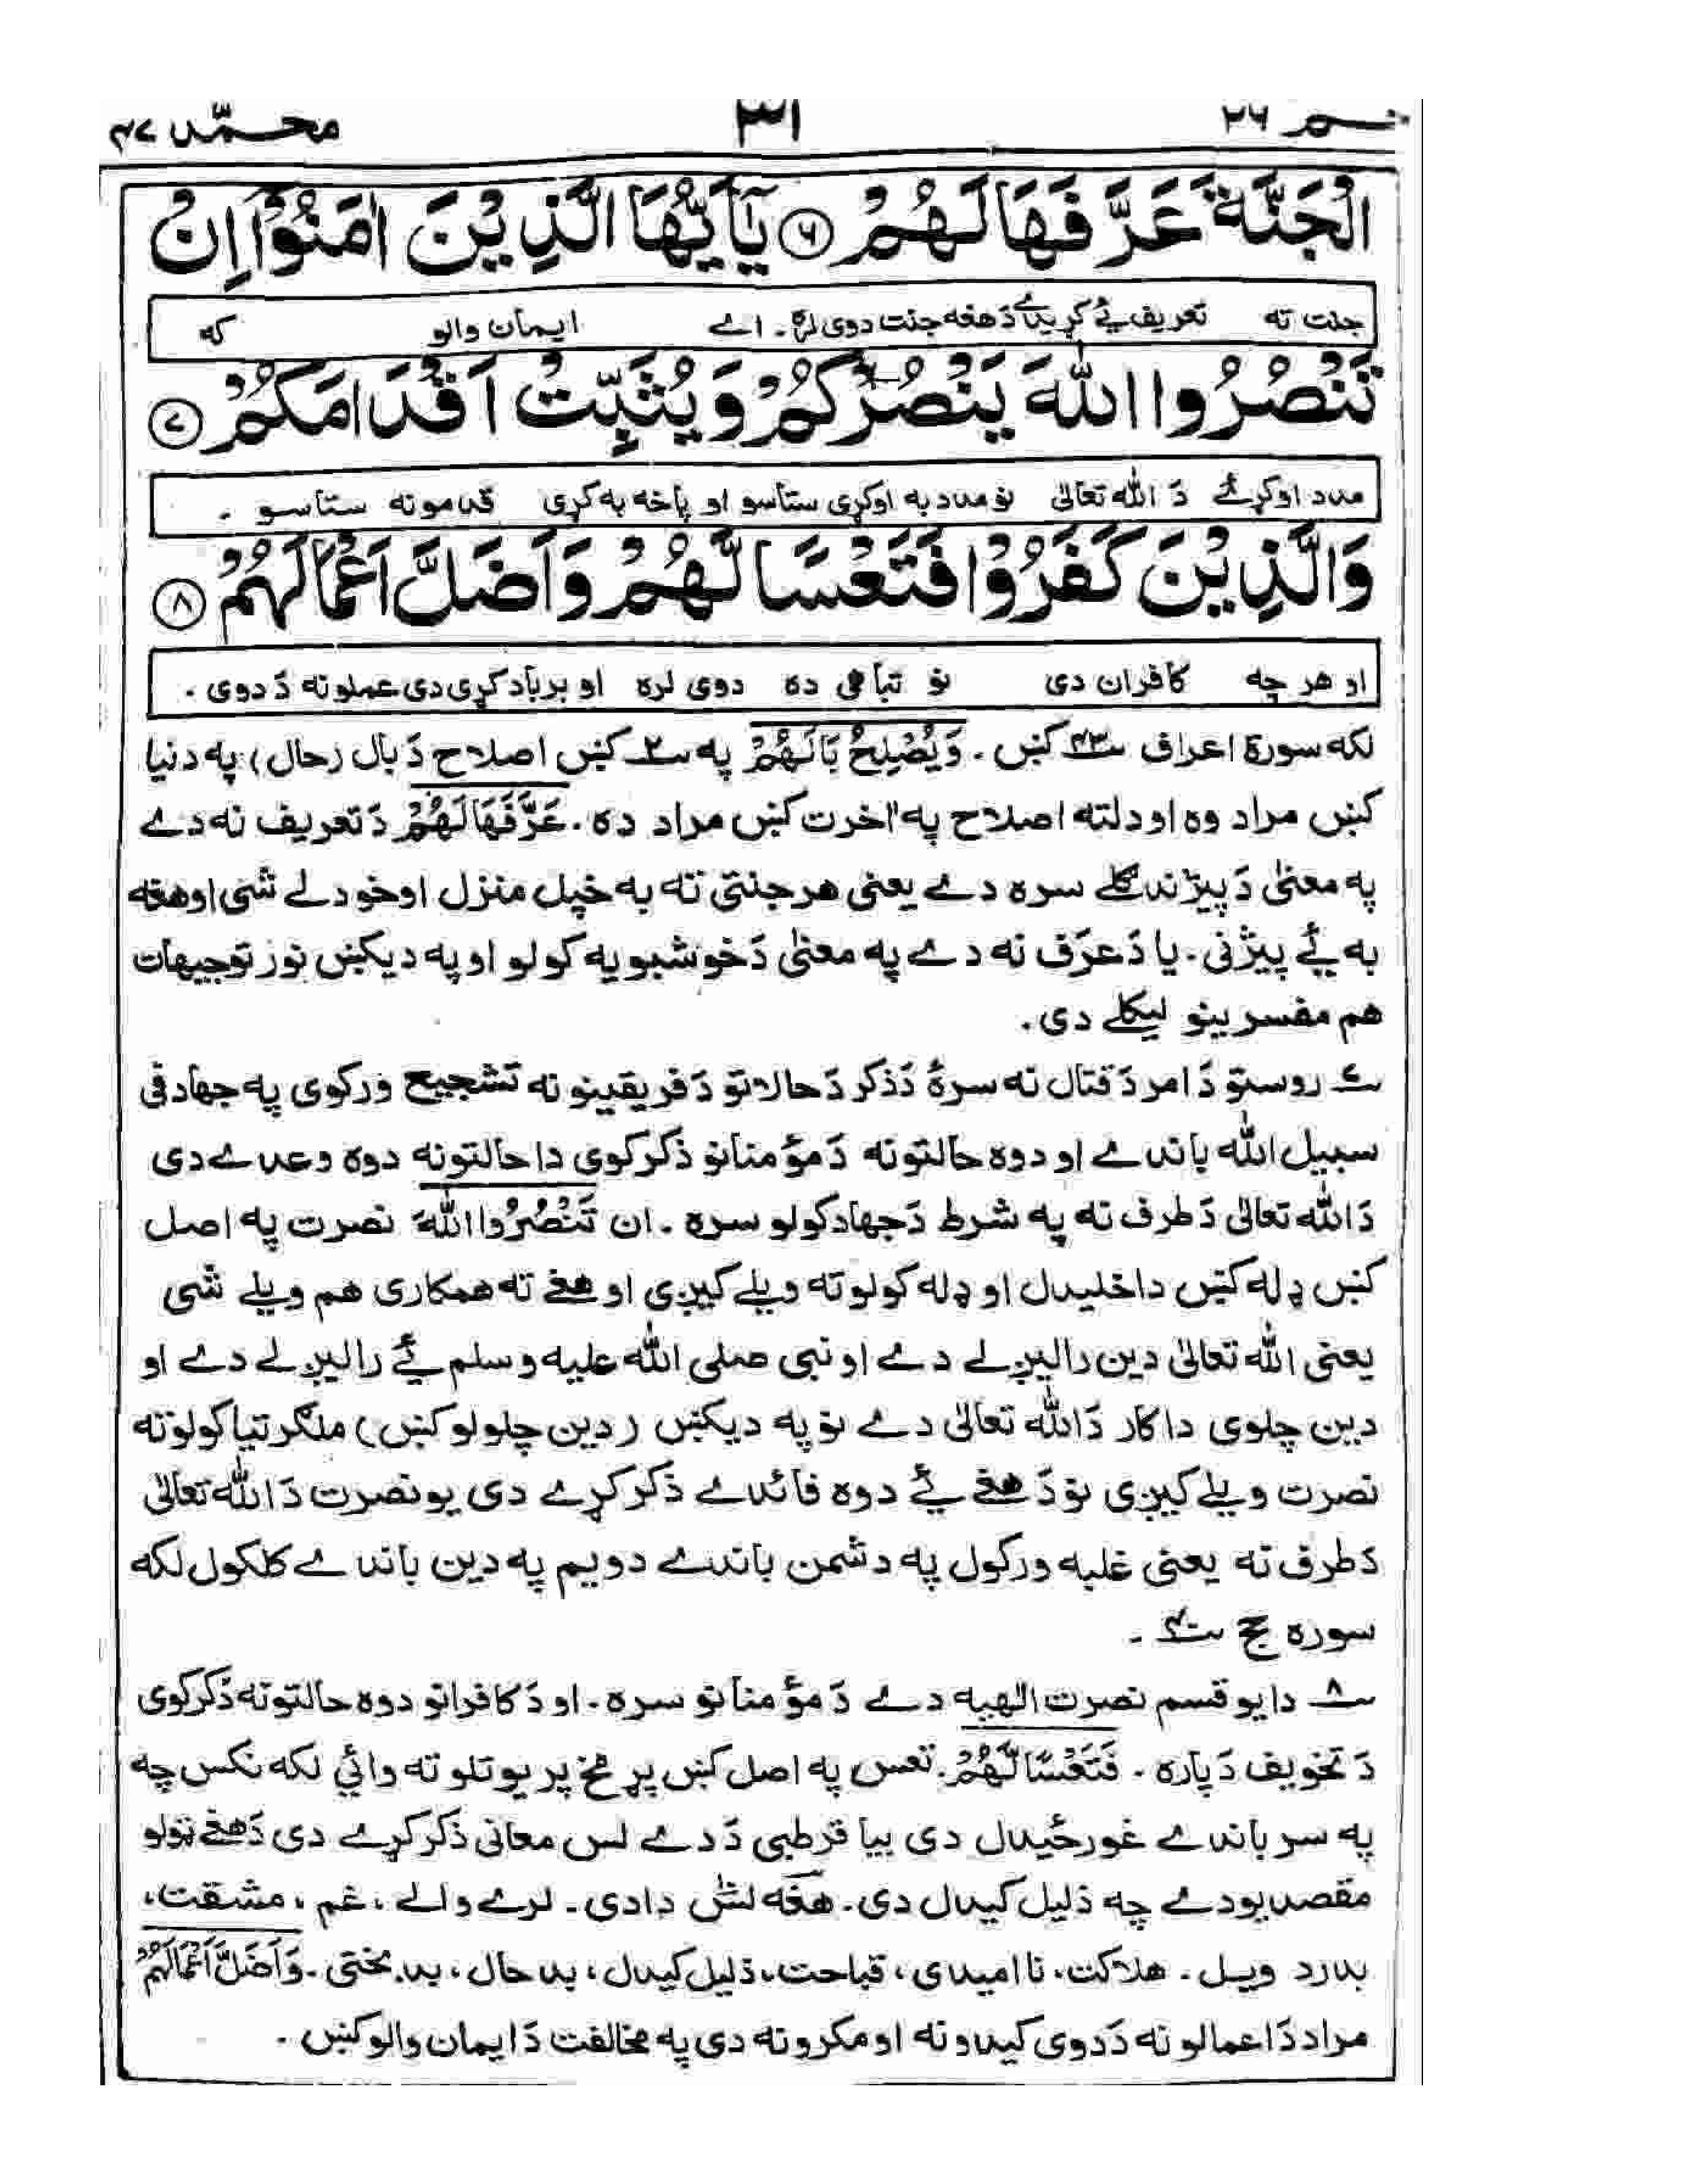 حٰم ۲۶ ۳۱ محمّد ۴۷
الْجَنَّةَ عَرَّفَهَا لَهُمْ ۶ يٰٓاَيُّهَا الَّذِيْنَ اٰمَنُوْٓا اِنْ
جنت ته تعریف ئے کړیدے دَ هغه جنت دوی لره۔ اے ایمان والو که
تَنْصُرُوا اللّٰهَ يَنْصُرْكُمْ وَيُثَبِّتْ اَقْدَامَكُمْ ۷
مدد اوکړئے دَ الله تعالیٰ نو مدد به اوکړی ستاسو او پاخه به کړی قدمونه ستاسو ۔
وَالَّذِيْنَ كَفَرُوْا فَتَعْسًا لَّهُمْ وَاَضَلَّ اَعْمَالَهُمْ ۸
او هر چه کافران دی نو تباهی ده دوی لره او برباد کړی دی عملونه دَ دوی ۔
لکه سورة اعراف ۴۳ کښ ۔ وَيُصْلِحُ بَالَهُمْ په ۲ کښ اصلاح دَ بال (حال) په دنیا
کښ مراد وه او دلته اصلاح په اخرت کښ مراد ده ۔ عَرَّفَهَا لَهُمْ دَ تعریف نه دے
په معنیٰ دَ پیژندګلے سره دے یعنی هر جنتی ته به خپل منزل اوخودلے شی او هغه
به ئے پیژنی ۔ یا دَ عَرَف نه دے په معنیٰ دَ خوشبویه کولو او په دیکښ نور توجیهات
هم مفسرینو لیکلے دی ۔
۷ روستو دَ امر دَ قتال نه سرهٔ دَ ذکر دَ حالاتو دَ فریقینو نه تشجیع ورکوی په جهاد فی
سبیل الله باندے او دوه حالتونه دَ مؤمنانو ذکر کوی دا حالتونه دوه وعدے دی
دَ الله تعالیٰ دَ طرف نه په شرط دَ جهاد کولو سره ۔ ان تَنْصُرُوا اللّٰهَ نصرت په اصل
کښ ډله کښ داخلیدل او ډله کولو ته ویلے کیږی او هغے ته همکاری هم ویلے شی
یعنی الله تعالیٰ دین رالیږلے دے او نبی صلی الله علیه وسلم ئے رالیږلے دے او
دین چلوی دا کار دَ الله تعالیٰ دے نو په دیکښ (دین چلولو کښ) ملګرتیا کولو ته
نصرت ویلے کیږی نو دَ هغے ئے دوه فائدے ذکر کړے دی یو نصرت دَ الله تعالیٰ
دَ طرف نه یعنی غلبه ورکول په دشمن باندے دویم په دین باندے کلکول لکه
سوره حج ۴۰ ۔
۸ دا یو قسم نصرت الٰهیه دے دَ مؤمنانو سره ۔ او دَ کافرانو دوه حالتونه ذکر کوی
دَ تخویف دَ پاره ۔ فَتَعْسًا لَّهُمْ ۔ تعس په اصل کښ پړ مخ پریوتلو ته وائي لکه نکس چه
په سر باندے غورځیدل دی بیا قرطبی دَ دے لس معانی ذکر کړے دی دَ هغے ټولو
مقصد یو دے چه ذلیل کیدل دی ۔ هغه لس دا دی ۔ لرے والے، غم، مشقت،
بدرد ویل ۔ هلاکت، ناامیدی، قباحت، ذلیل کیدل، بدحال، بدبختی ۔ وَاَضَلَّ اَعْمَالَهُمْ
مراد دَ اعمالو نه دَ دوی کیدونه او مکرونه دی په مخالفت دَ ایمان والو کښ ۔